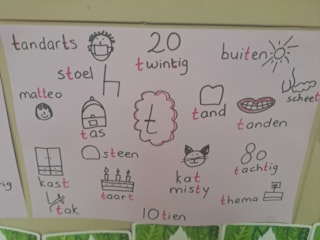 tandarts
20
twintig
buiten
stoel
scheet
matteo
tas
t
tand
tanden
steen
kat
misty
80
tachtig
kast
taart
thema
tak
10 tien